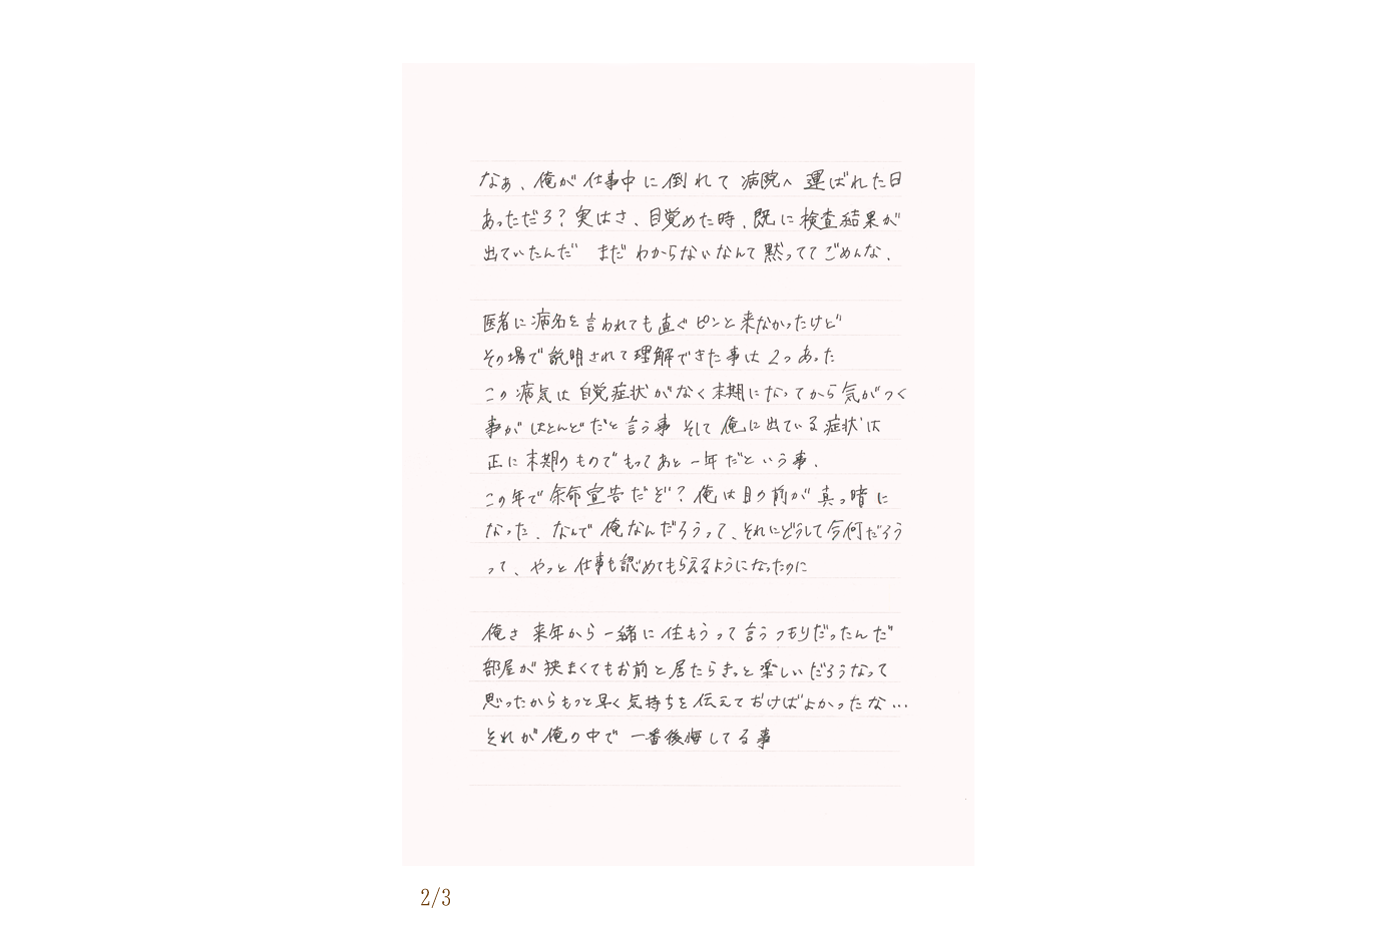 なぁ、俺が仕事中に倒れて病院へ運ばれた日
あっただろ？実はさ、目覚めた時、既に検査結果が
出ていたんだ　まだわからないなんて黙っててごめんな、
医者に病名を言われても直ぐピンと来なかったけど
その場で説明されて理解できた事は2つあった
この病気は自覚症状がなく末期になってから気がつく
事がほとんどだと言う事 そして俺に出ている症状は
正に末期のものでもってあと一年だという事、
この年で余命宣告だぞ？俺は目の前が真っ暗に
なった、なんで俺なんだろうって、それにどうして今何だろう
って、やっと仕事も認めてもらえるようになったのに
俺さ 来年から一緒に住もうって言うつもりだったんだ
部屋が狭まくてもお前と居たらきっと楽しいだろうなって
思ったからもっと早く気持ちを伝えておけばよかったな…
それが俺の中で一番後悔してる事
2/3